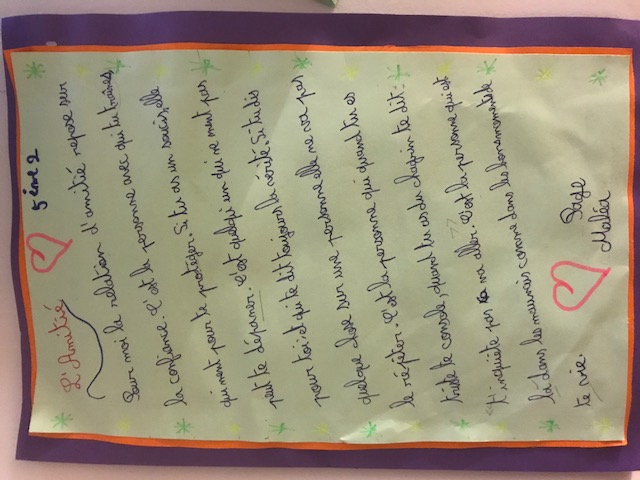 L'Amitié
5ème 2
Pour moi la relation d'amitié repose sur
la confiance. C'est la personne avec qui tu traines,
qui ment pour te protéger. Si tu as un soucis, elle
peut te dépaner. C'est quelqu'un qui ne ment pas
pour toi et qui te dit toujours la vérité. Si tu dis
quelque chose sur une personne elle ne va pas
le repeter. C'est la personne qui quand tu es
triste te console, quant tu as du chagrin te dit :
"t'inquiète pas ça va aller. C'est la personne qui est
là dans les mauvais comme dans les bons moments de
te vie.
Page
Maléa